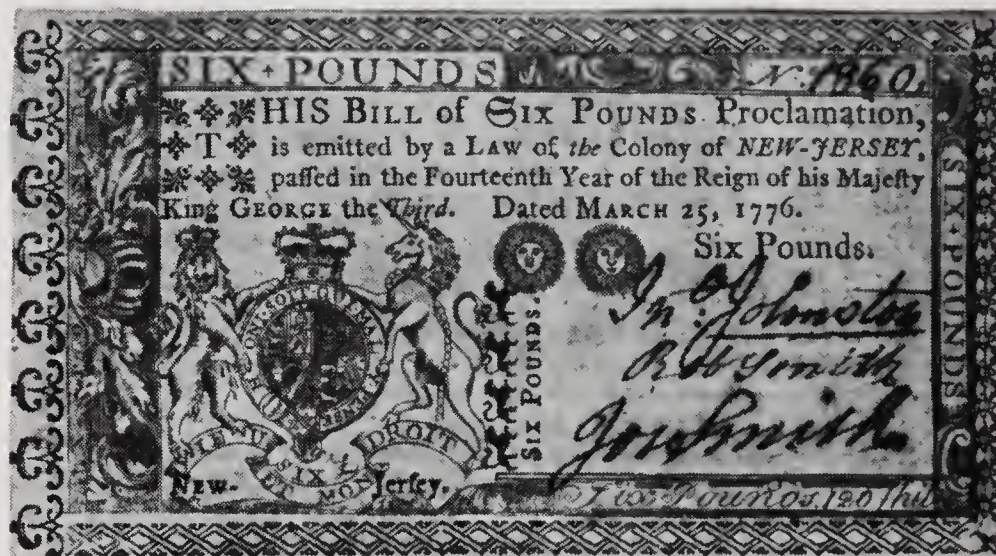 SIX + POUNDS No. 1860.
HIS BILL of SIX POUNDS Proclamation,
T is emitted by a LAW of the Colony of NEW-JERSEY,
paſſed in the Fourteenth Year of the Reign of his Majeſty
King GEORGE the Third. Dated MARCH 25, 1776.
Six Pounds.
Jno. Johnston
Rob Smith
Jos Smith
SIX POUNDS.
SIX + POUNDS
DIEU DROIT
SIX £
ET MON
NEW- Jerſey.
Six Pounds